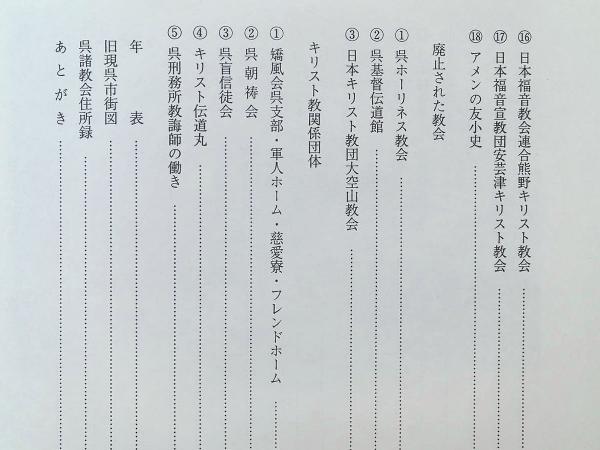 ⑯日本福音教会連合熊野キリスト教会
⑰日本福音宣教団安芸津キリスト教会
⑱アメンの友小史
廃止された教会
①呉ホーリネス教会
②呉基督伝道館
③日本キリスト教団大空山教会
キリスト教関係団体
①矯風会呉支部・軍人ホーム・慈愛寮・フレンドホーム
②呉朝祷会
③呉盲信徒会
④キリスト伝道丸
⑤呉刑務所教誨師の働き
年表
旧現呉市街図
呉諸教会住所録
あとがき